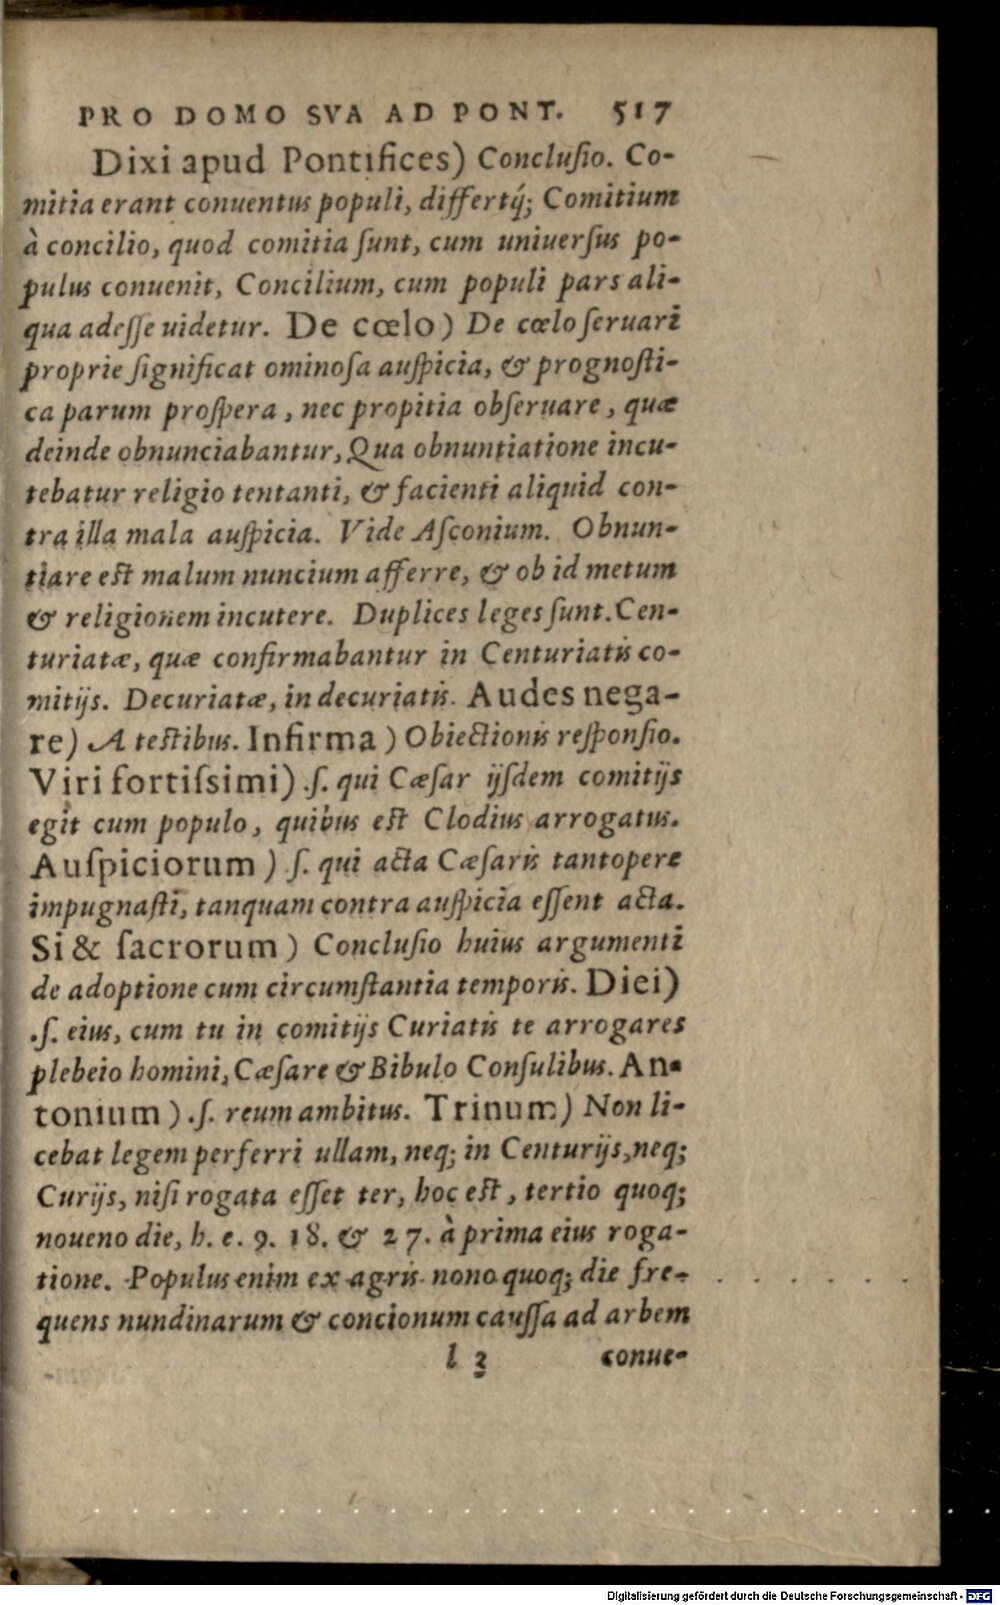 PRO DOMO SVA AD PONT. 517
Dixi apud Pontifices) Concluſio. Co-
mitia erant conuentus populi, differtq́; Comitium
à concilio, quod comitia ſunt, cum uniuerſus po-
pulus conuenit, Concilium, cum populi pars ali-
qua adeſſe uidetur. De cœlo) De cœlo ſeruari
proprie ſignificat ominoſa auſpicia, & prognoſti-
ca parum proſpera, nec propitia obſeruare, quæ
deinde obnunciabantur, Qua obnuntiatione incu-
tebatur religio tentanti, & facienti aliquid con-
tra illa mala auſpicia. Vide Aſconium. Obnun-
tiare eſt malum nuncium afferre, & ob id metum
& religionem incutere. Duplices leges ſunt. Cen-
turiatæ, quæ confirmabantur in Centuriatis co-
mitijs. Decuriatæ, in decuriatis. Audes nega-
re) A teſtibus. Infirma) Obiectionis reſponſio.
Viri fortiſsimi) .ſ. qui Cæſar ijſdem comitijs
egit cum populo, quibus eſt Clodius arrogatus.
Auſpiciorum) .ſ. qui acta Cæſaris tantopere
impugnaſti, tanquam contra auſpicia eſſent acta.
Si & ſacrorum) Concluſio huius argumenti
de adoptione cum circumſtantia temporis. Diei)
.ſ. eius, cum tu in comitijs Curiatis te arrogares
plebeio homini, Cæſare & Bibulo Conſulibus. An-
tonium) .ſ. reum ambitus. Trinum) Non li-
cebat legem perferri ullam, neq; in Centurijs, neq;
Curijs, niſi rogata eſſet ter, hoc eſt, tertio quoq;
noueno die, h. e. 9. 18. & 27. à prima eius roga-
tione. Populus enim ex agris nono quoq; die fre-
quens nundinarum & concionum cauſſa ad arbem
l 3 conue-
Digitalisierung gefördert durch die Deutsche Forschungsgemeinschaft - DFG